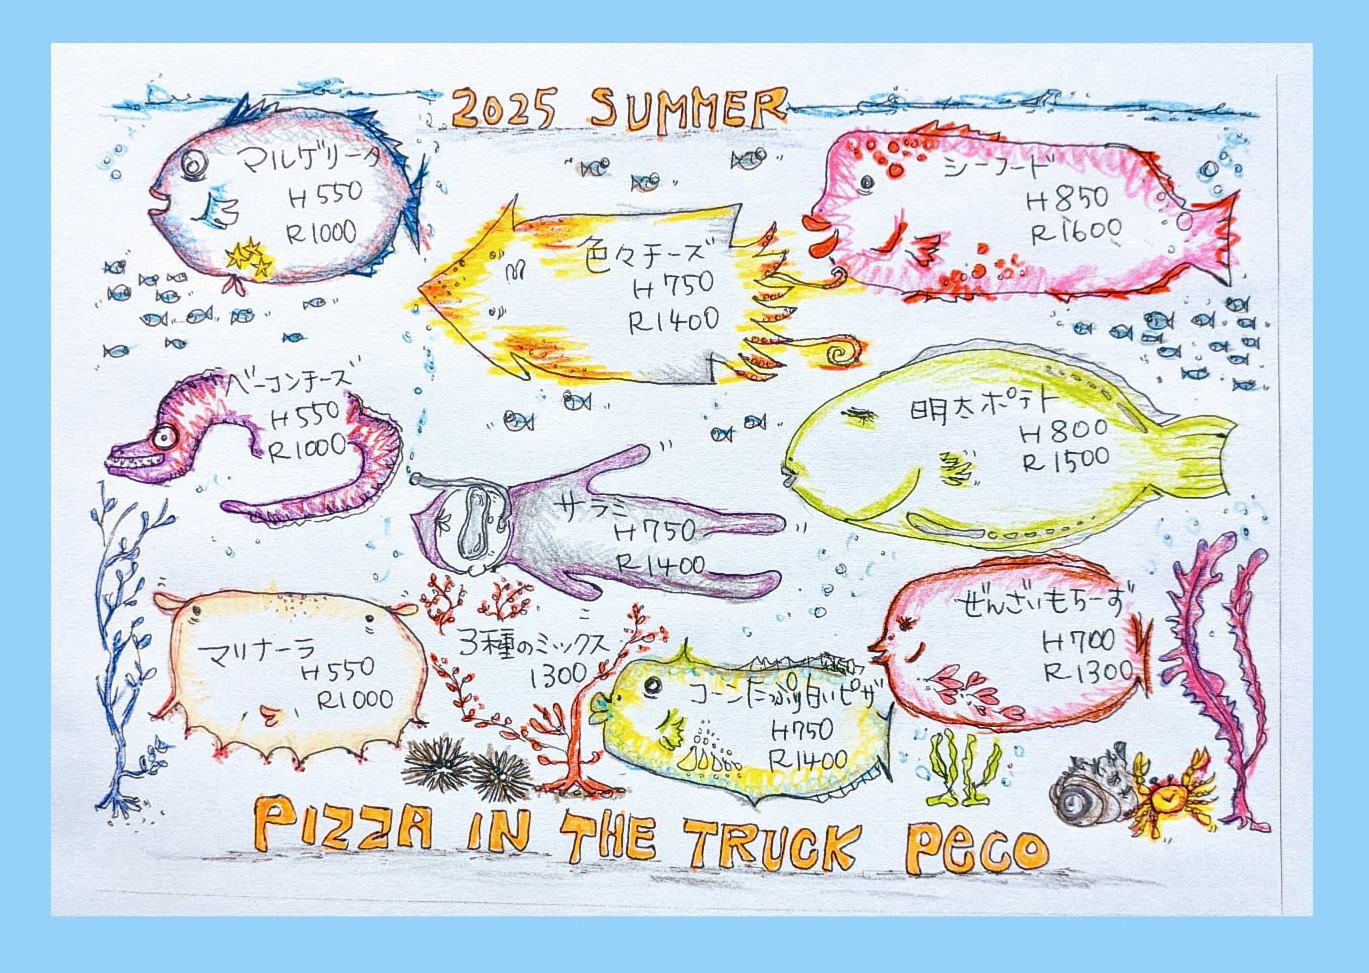 2025 SUMMER
マルゲリータ
H 550
R1000
色々チーズ
H 750
R1400
シーフード
H 850
R1600
ベーコンチーズ
H 550
R1000
サラミ
H750
R1400
明太ポテト
H 800
R 1500
マリナーラ
H 550
R1000
3種のミックス
1300
コーンたっぷり白いピザ
H750
R1400
ぜんざいもちーず
H 700
R1300
PIZZA IN THE TRUCK PECO